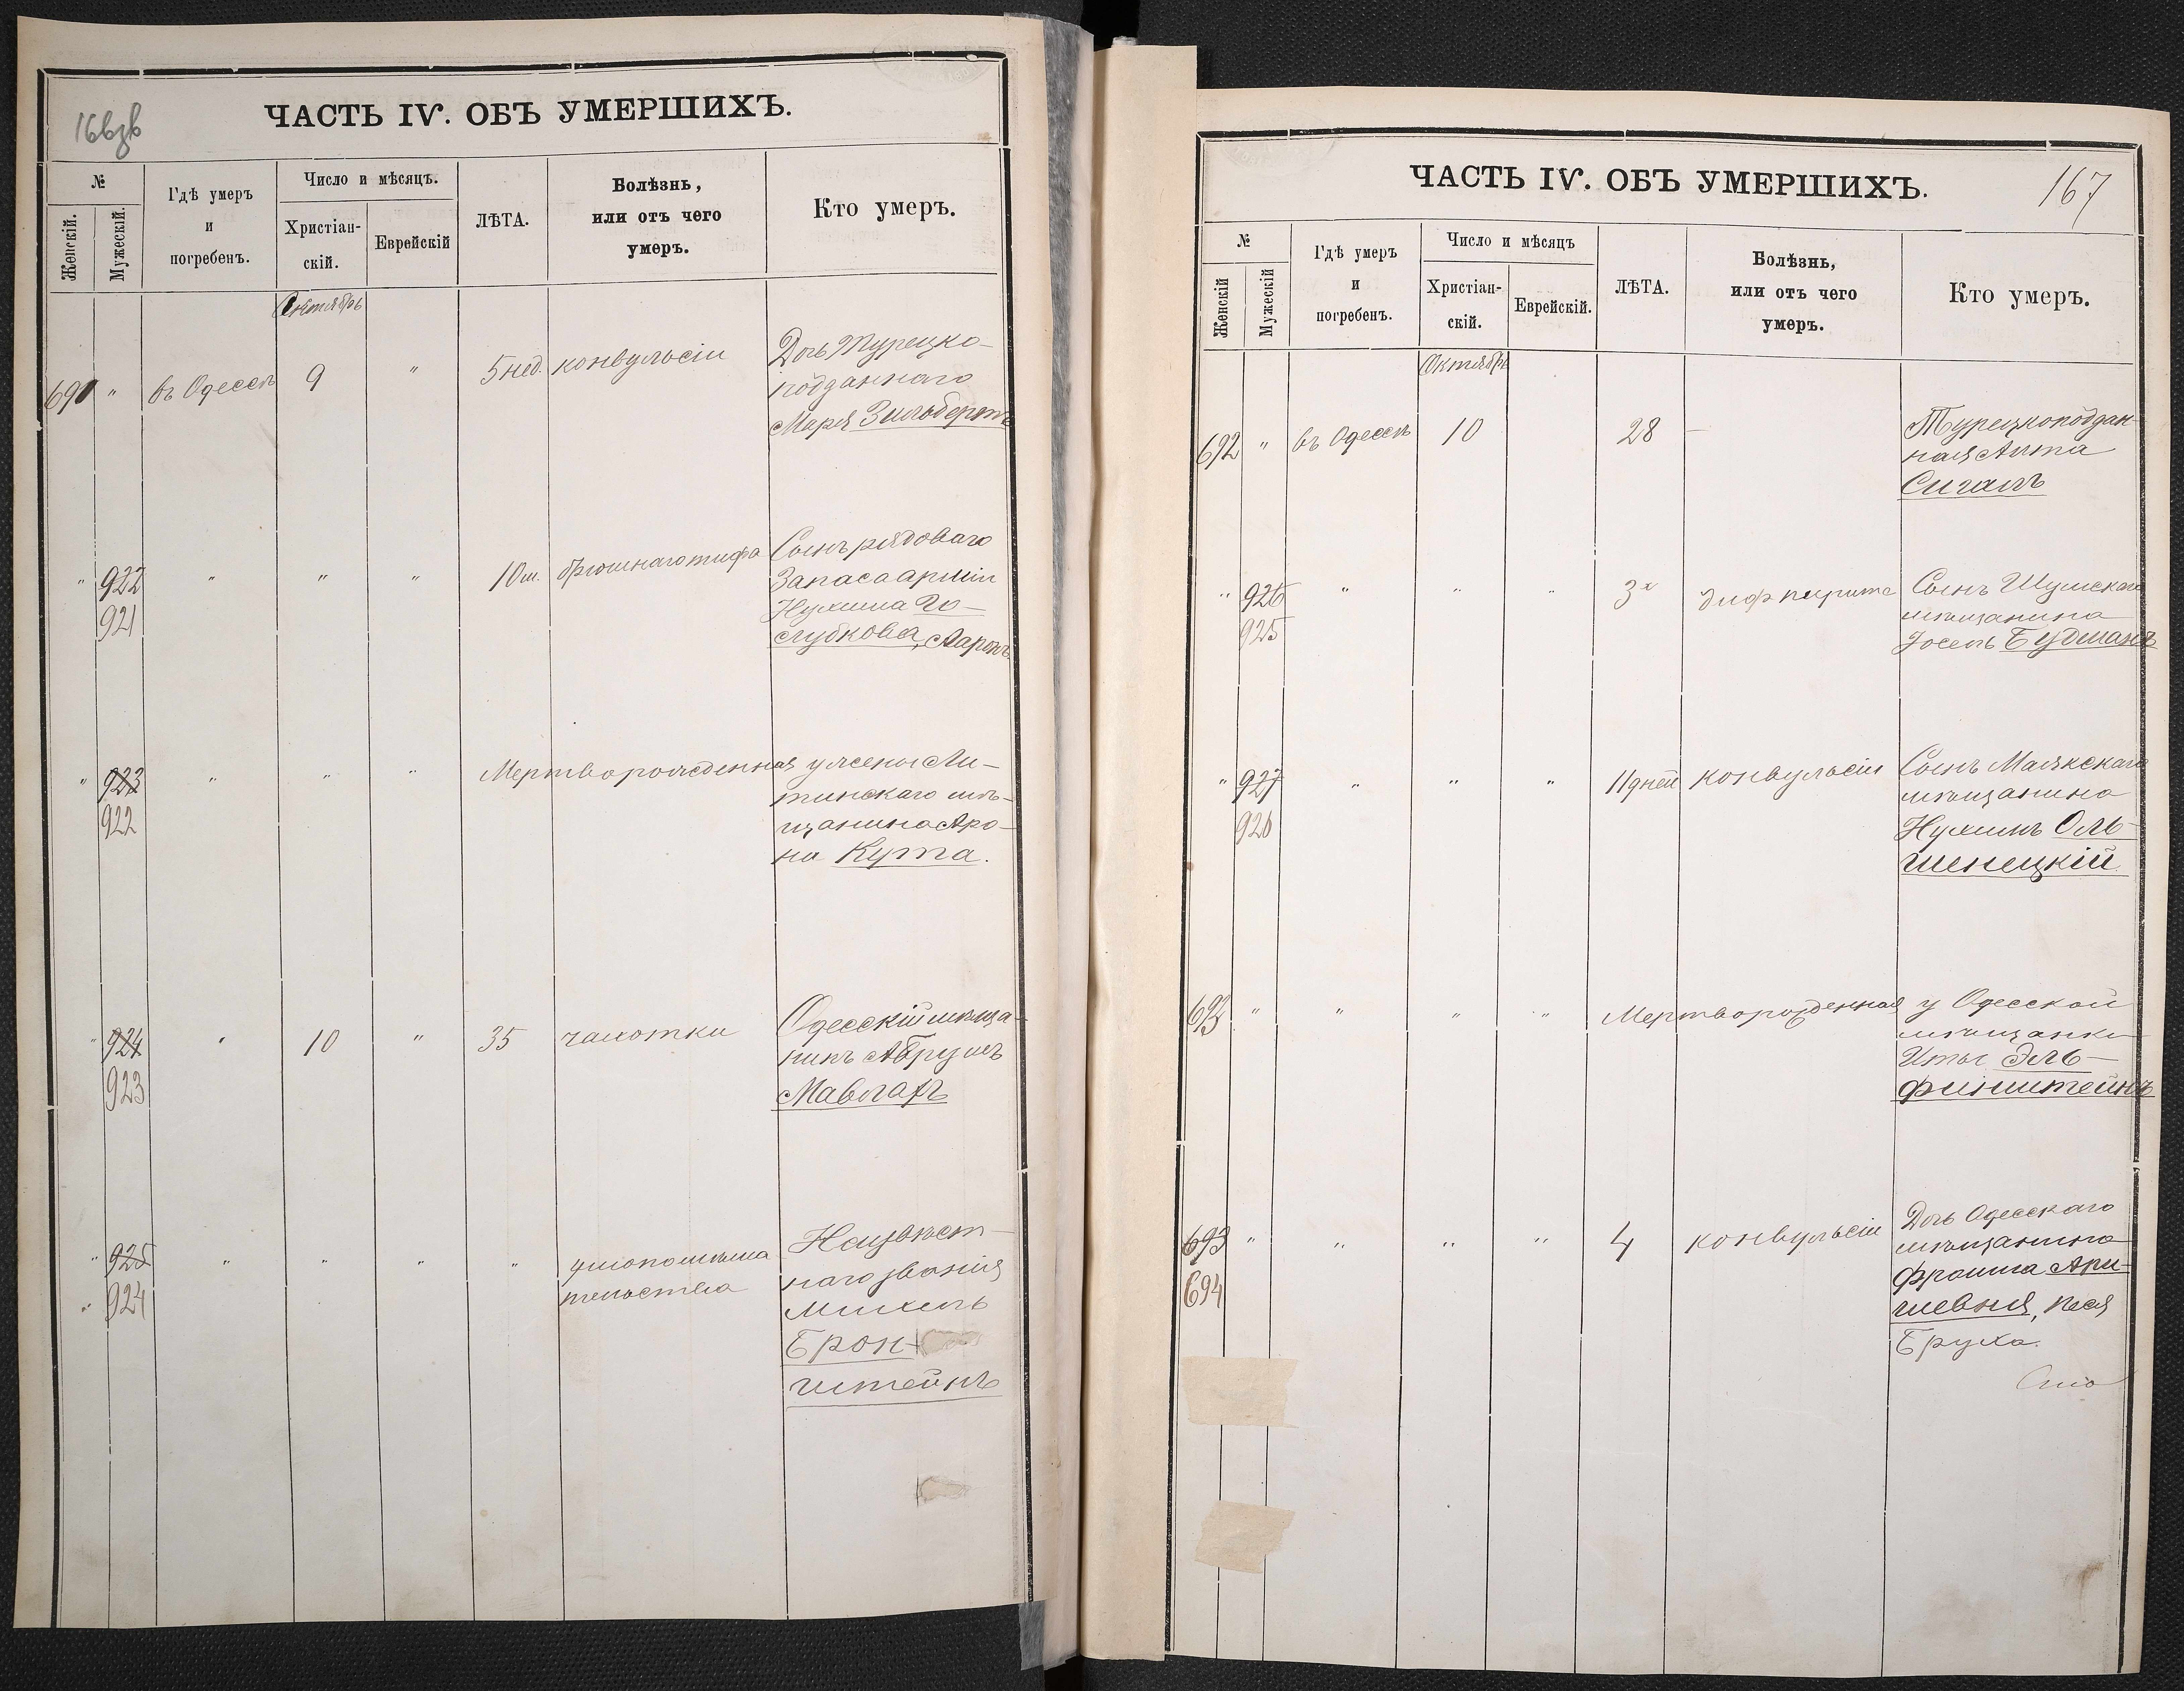 166зв
ЧАСТЬ IV. ОБЪ УМЕРШИХЪ.
№
Женскій.
Мужескій.
Гдѣ умеръ
и
погребенъ.
Число и мѣсяцъ.
Христіан-
скій.
Еврейскій
ЛѢТА.
Болѣзнь,
или отъ чего
умеръ.
Кто умеръ.
Октябрь
691 " въ Одессѣ 9 " 5 нед. конвульсіи
Дочь Турецко-
подданнаго
Марія Зильберт
" 922 " " " 10 м. брюшнаго тифа
921
Сынъ рядоваго
Запаса арміи
Нухима Го-
лубкова, Ааронъ
" 923 " " " Мертворожденная
922
у жены Ли-
тинскаго мѣ-
щанина Аро-
на Кута.
" 924 " 10 " 35 чахотки
923
Одесскій мѣща-
нинъ Абрумъ
Мавлахъ
" 925 " " " "
" 924
умопомѣша
тельства
званія
Михель
Брон-
штейнъ
167
ЧАСТЬ IV. ОБЪ УМЕРШИХЪ.
№
Женскій
Мужескій
Гдѣ умеръ
и
погребенъ.
Число и мѣсяцъ
Христіан-
скій.
Еврейскій.
ЛѢТА.
Болѣзнь,
или отъ чего
умеръ.
Кто умеръ.
Октябрь
692 " въ Одессѣ 10 28 —
Турецкоподдан
ная
Сигалъ
" 926 " " " 3х дифтерита
925
Сынъ Шумскаго
мѣщанина
Іосель Будманъ
" 927 " " " 11 дней конвульсіи
926
Сынъ Маякскаго
мѣщанина
Нухимъ Оль-
шенецкій
693 " " " " Мертворожденная
у Одесской
мѣщанки
Иты Эль-
финштейнъ
693 " " " " 4 конвульсіи
694
Дочь Одесскаго
мѣщанина
Фроима Ари-
Песя
Бруха.